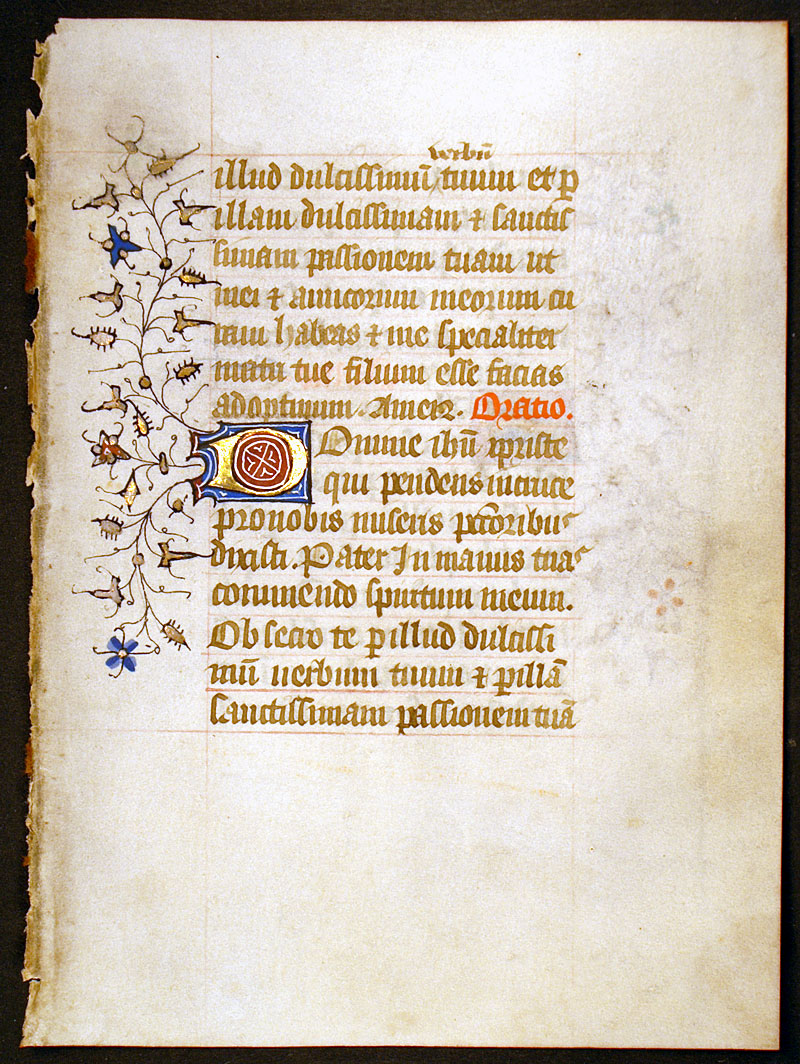 verbū
illud dulcissimū tuum et p
illam dulcissimam & sanctis
simam passionem tuam ut
mei & amicorum meorum cu
ram habeas & me specialiter
matri tue filium esse facias
adoptiuum. Amen. Oratio.
Domine ihū xpriste
qui pendens in cruce
pro nobis miseris peccōribus
dixisti. Pater In manus tuas
commendo spiritum meum.
Obsecro te p illud dulcissi
mū uerbum tuum & p illā
sanctissimam passionem tuā